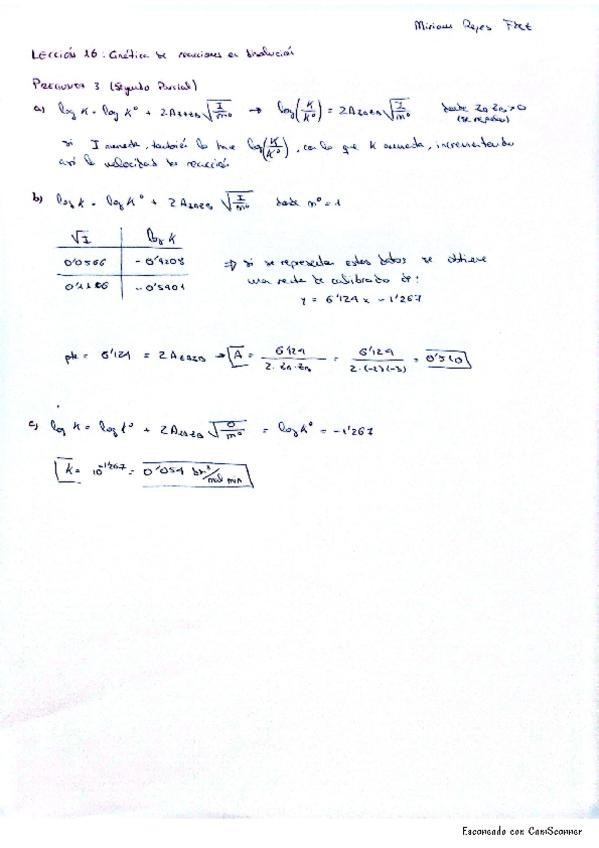 Miriam Reyes
LECCIÓN 16: Cinética de reacciones en disolución
PREGUNTA 3 (Segundo Parcial)
a) log K = log K° + 2AzAzB √(I/m°) → log(K/K°) = 2AzAzB √(I/m°) donde zA zB > 0
(se repelen)
si I aumenta, también lo hace log(K/K°), con lo que K aumenta, incrementando
así la velocidad de reacción
b) log K = log K° + 2AzAzB √(I/m°) donde m° = 1
√I log K
0'0566 -0'9203
-0'5401
⇒ si se representan estos datos se obtiene
una recta de calibrado de:
y = 6'124x - 1'267
pte = 6'124 = 2AzAzB → A = 6'124/(2·zA·zB) = 6'124/(2·(-2)(-3)) = 0'510
c) log K = log K° + 2AzAzB √(0/m°) = log K° = -1'267
K = 10^-1'267 = 0'054 dm³/mol min
Escaneado con CamScanner